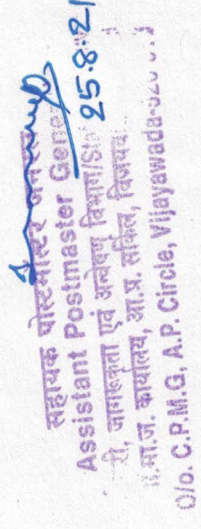 25.8.21
सहायक पोस्टमास्टर
Assistant Postmaster Gene
री, जागरूकता एवं अन्वेषण विभाग/St
कार्यालय, आ.प्र. सर्किल,
O/o. C.P.M.G, A.P. Circle, Vijayawada-520